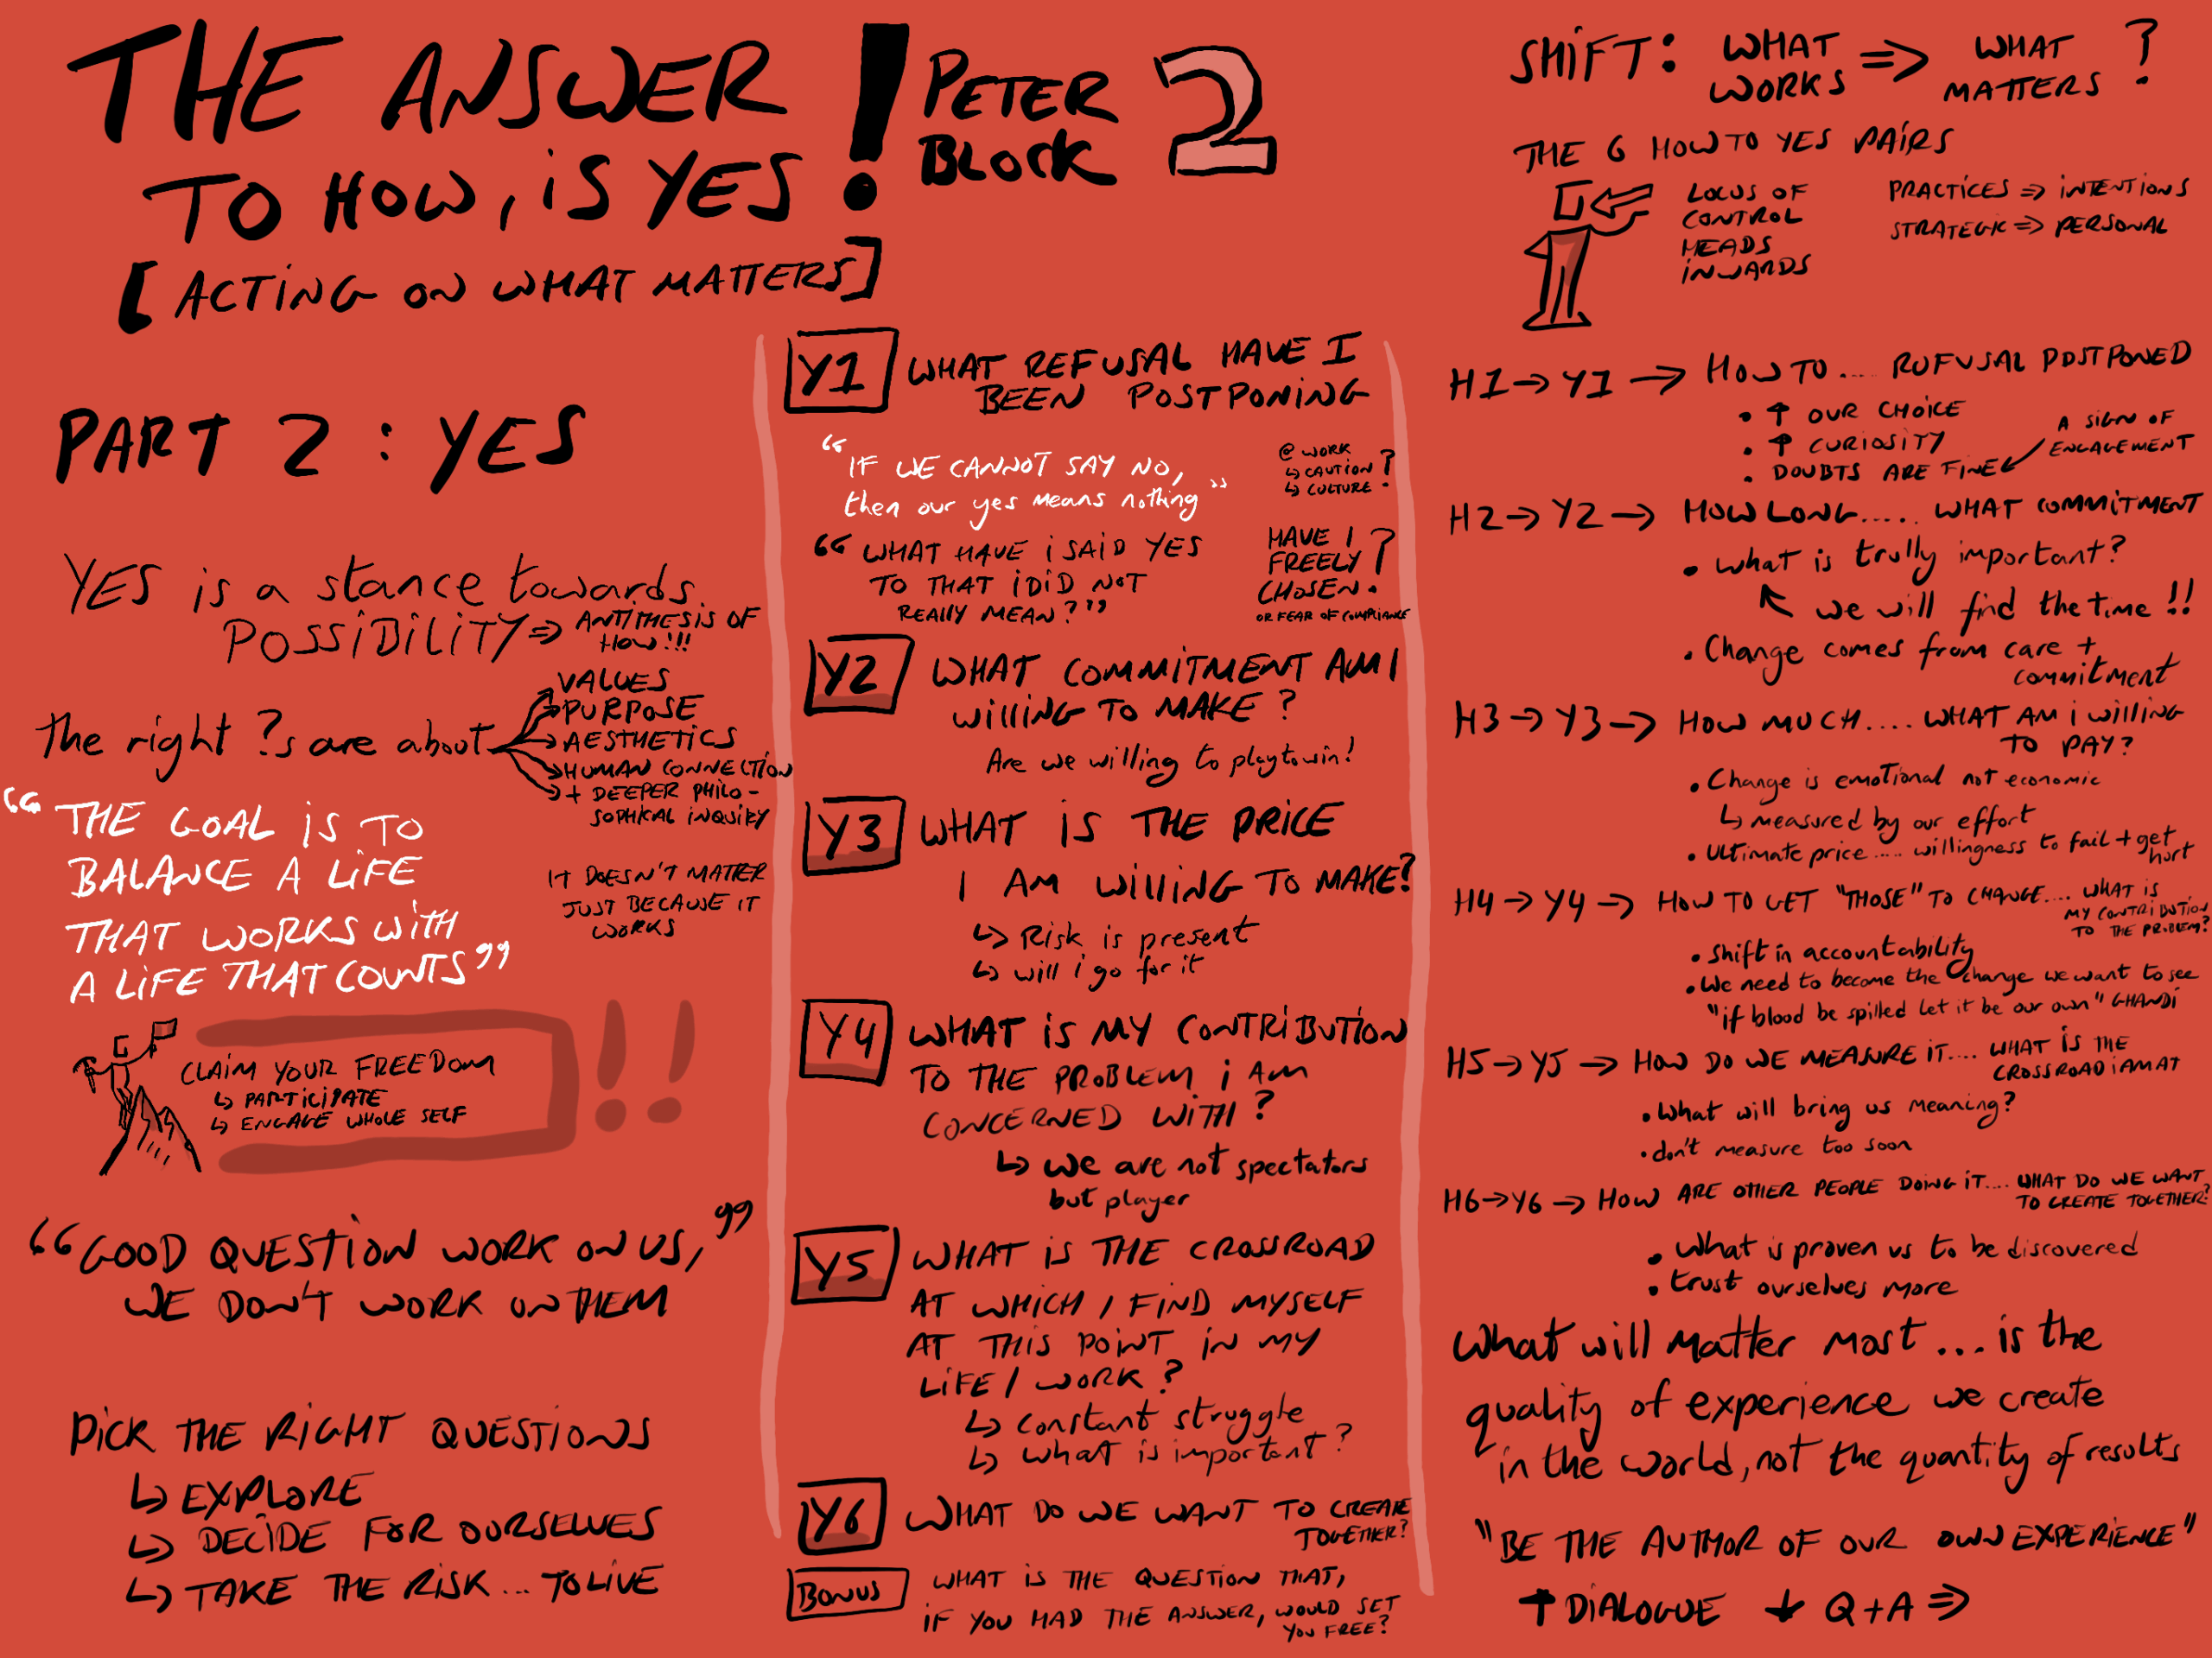 THE ANSWER
TO HOW, iS YES!
[ACTiNG ON WHAT MATTERS]
PETER
BLOCK
2
PART 2 : YES
YES is a stance towards
POSSiBiLiTY => ANTiTHESiS OF
HOW!!!
the right ?s are about
VALUES
PURPOSE
AESTHETiCS
HUMAN CONNECTiON
+ DEEPER PHiLO-
SOPHiCAL iNQUiRY
“THE GOAL iS TO
BALANCE A LiFE
THAT WORKS WiTH
A LiFE THAT COUNTS”
iT DOESN'T MATTER
JUST BECAUSE iT
WORKS
CLAiM YOUR FREEDOM
↳ PARTiCiPATE
↳ ENGAGE WHOLE SELF
!!
“GOOD QUESTiON WORK ON US,”
WE DON'T WORK ON THEM
PiCK THE RiGHT QUESTiONS
↳ EXPLORE
↳ DECiDE FOR OURSELVES
↳ TAKE THE RiSK... TO LiVE
Y1 WHAT REFUSAL HAVE I
BEEN POSTPONiNG
“IF WE CANNOT SAY NO,
then our yes means nothing”
@ WORK
↳ CAUTiON ?
↳ CULTURE
“WHAT HAVE i SAiD YES
TO THAT i DiD NOT
REAllY MEAN?”
HAVE I
FREELY ?
CHOSEN
OR FEAR OF COMPLiANCE
Y2 WHAT COMMiTMENT AM I
WilliNG TO MAKE?
Are we willing to play to win!
Y3 WHAT iS THE PRiCE
I AM WilliNG TO MAKE?
↳ Risk is present
↳ will i go for it
Y4 WHAT iS MY CONTRiBUTiON
TO THE PROBLEM i AM
CONCERNED WiTH?
↳ we are not spectators
but player
Y5 WHAT iS THE CROSSROAD
AT WHiCH I FiND MYSELF
AT THiS POiNT iN MY
LiFE / WORK?
↳ constant struggle
↳ what is important?
Y6 WHAT DO WE WANT TO CREATE
TOGETHER?
BONUS WHAT iS THE QUESTiON THAT,
iF YOU HAD THE ANSWER, WOULD SET
YOU FREE?
SHiFT: WHAT WORKS => WHAT MATTERS ?
THE 6 HOW TO YES PAiRS
LOCUS OF
CONTROL
HEADS
iNWARDS
PRACTiCES => iNTENTiONS
STRATEGiC => PERSONAL
H1 → Y1 → HOW TO.... RUFUSAL POSTPONED
• ↑ OUR CHOiCE
• ↑ CURiOSiTY
• DOUBTS ARE FiNE
A SiGN OF
ENGAGEMENT
H2 → Y2 → HOW LONG..... WHAT COMMiTMENT
• what is trully important?
we will find the time!!
• Change comes from care +
commitment
H3 → Y3 → HOW MUCH.... WHAT AM i WilliNG
TO PAY?
• Change is emotional not economic
↳ measured by our effort
• Ultimate price .... willingness to fail + get
hurt
H4 → Y4 → HOW TO GET "THOSE" TO CHANGE.... WHAT iS
MY CONTRiBUTiON
TO THE PROBLEM?
• Shift in accountability
• We need to become the change we want to see
"if blood be spilled let it be our own" GHANDi
H5 → Y5 → HOW DO WE MEASURE iT.... WHAT iS THE
CROSSROAD i AM AT
• What will bring us meaning?
• don't measure too soon
H6 → Y6 → HOW ARE OTHER PEOPLE DOiNG iT.... WHAT DO WE WANT
TO CREATE TOGETHER?
• What is proven vs to be discovered
• trust ourselves more
What will matter most... is the
quality of experience we create
in the world, not the quantity of results
"BE THE AUTHOR OF OUR OWN EXPERiENCE"
↑ DiALOGUE ↓ Q+A =>